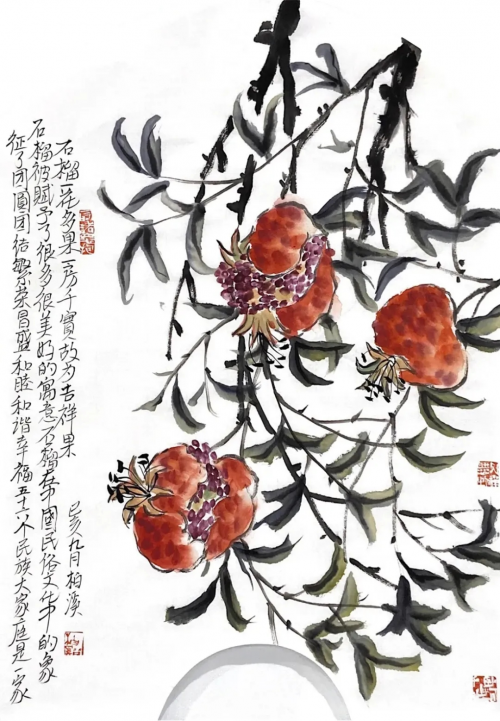 石榴一花多果一房千實故为吉祥果
石榴被赋予了很多很美好的寓意石榴在中國民俗文化中的象
征了团圓团结繁荣昌盛和睦和谐幸福五十六个民族大家庭是一家
己亥九月柏